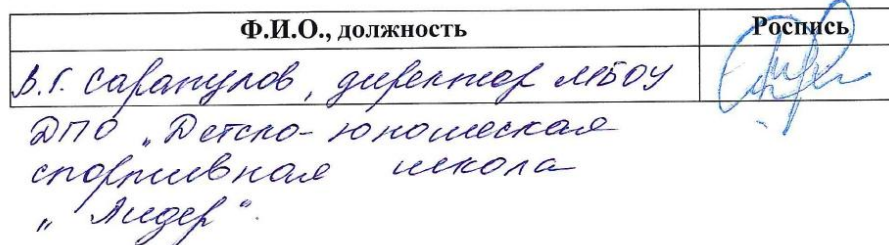 Ф.И.О., должность Роспись
В.Г. Сарапулов, директор МБОУ
ДПО „Детско-юношеская
спортивная школа
„Лидер“.